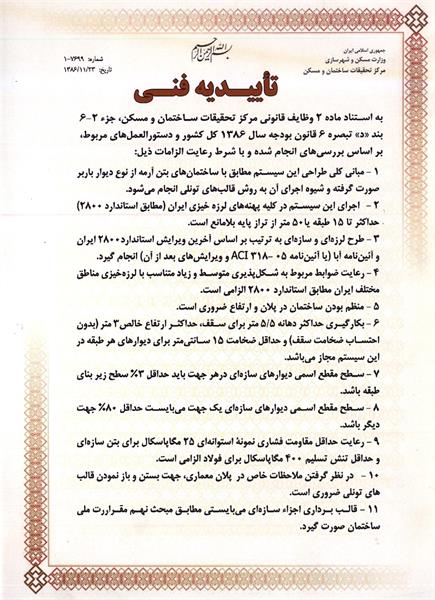 بسم الله الرحمن الرحیم
جمهوری اسلامی ایران
وزارت مسکن و شهرسازی
مرکز تحقیقات ساختمان و مسکن
شماره: ۷۶۹۹-۱
تاریخ: ۱۳۸۶/۱۱/۲۳
تأییدیه فنی
به استناد ماده ۲ وظایف قانونی مرکز تحقیقات ساختمان و مسکن، جزء ۲-۶
بند «د» تبصره ۶ قانون بودجه سال ۱۳۸۶ کل کشور و دستورالعمل‌های مربوط،
بر اساس بررسی‌های انجام شده و با شرط رعایت الزامات ذیل:
۱ - مبانی کلی طراحی این سیستم مطابق با ساختمان‌های بتن آرمه از نوع دیوار باربر
صورت گرفته و شیوه اجرای آن به روش قالب‌های تونلی انجام می‌شود.
۲ - اجرای این سیستم در کلیه پهنه‌های لرزه خیزی ایران (مطابق استاندارد ۲۸۰۰)
حداکثر تا ۱۵ طبقه یا ۵۰ متر از تراز پایه بلامانع است.
۳ - طرح لرزه‌ای و سازه‌ای به ترتیب بر اساس آخرین ویرایش استاندارد ۲۸۰۰ ایران
و آئین‌نامه آبا (یا آئین‌نامه ACI ۳۱۸- ۰۵ و ویرایش‌های بعد از آن) انجام گیرد.
۴ - رعایت ضوابط مربوط به شکل‌پذیری متوسط و زیاد متناسب با لرزه‌خیزی مناطق
مختلف ایران مطابق استاندارد ۲۸۰۰ الزامی است.
۵ - منظم بودن ساختمان در پلان و ارتفاع ضروری است.
۶ - بکارگیری حداکثر دهانه ۵/۵ متر برای سقف، حداکثر ارتفاع خالص ۳ متر (بدون
احتساب ضخامت سقف) و حداقل ضخامت ۱۵ سانتی‌متر برای دیوارهای هر طبقه در
این سیستم مجاز می‌باشد.
۷ - سطح مقطع اسمی دیوارهای سازه‌ای در هر جهت باید حداقل ۳٪ سطح زیر بنای
طبقه باشد.
۸ - سطح مقطع اسمی دیوارهای سازه‌ای یک جهت می‌بایست حداقل ۸۰٪ جهت
دیگر باشد.
۹ - رعایت حداقل مقاومت فشاری نمونهٔ استوانه‌ای ۲۵ مگاپاسکال برای بتن سازه‌ای
و حداقل تنش تسلیم ۴۰۰ مگاپاسکال برای فولاد الزامی است.
۱۰ - در نظر گرفتن ملاحظات خاص در پلان معماری، جهت بستن و باز نمودن قالب
های تونلی ضروری است.
۱۱ - قالب برداری اجزاء سازه‌ای می‌بایستی مطابق مبحث نهم مقررات ملی
ساختمان صورت گیرد.